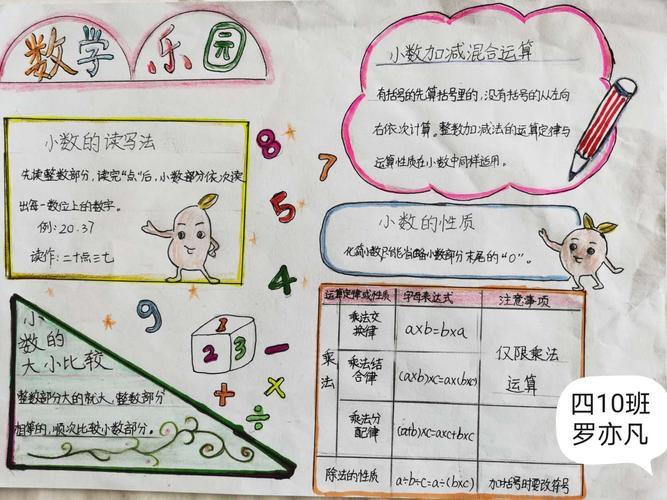 数学乐园
小数的读写法
先读整数部分,读完"点"后,小数部分依次读
出每一数位上的数字。
例:20.37
读作:二十点三七
小数加减混合运算
有括号的先算括号里的,没有括号的从左向
右依次计算。整数加减法的运算定律与
运算性质在小数中同样适用。
8
7
5
4
9
小数的性质
化简小数只能省略小数部分末尾的"0"。
小
数
的
大小比较
整数部分大的就大,整数部分
相等的,顺次比较小数部分。
1
2 3
−
+ ×
÷
运算定律或性质 字母表达式 注意事项
乘法
乘法交
换律
a×b=b×a
乘法结
合律
(a×b)×c=a×(b×c)
乘法分
配律
(a+b)×c=a×c+b×c
仅限乘法
运算
除法的性质 a÷b÷c=a÷(b×c) 加括号时要改符号
四10班
罗亦凡